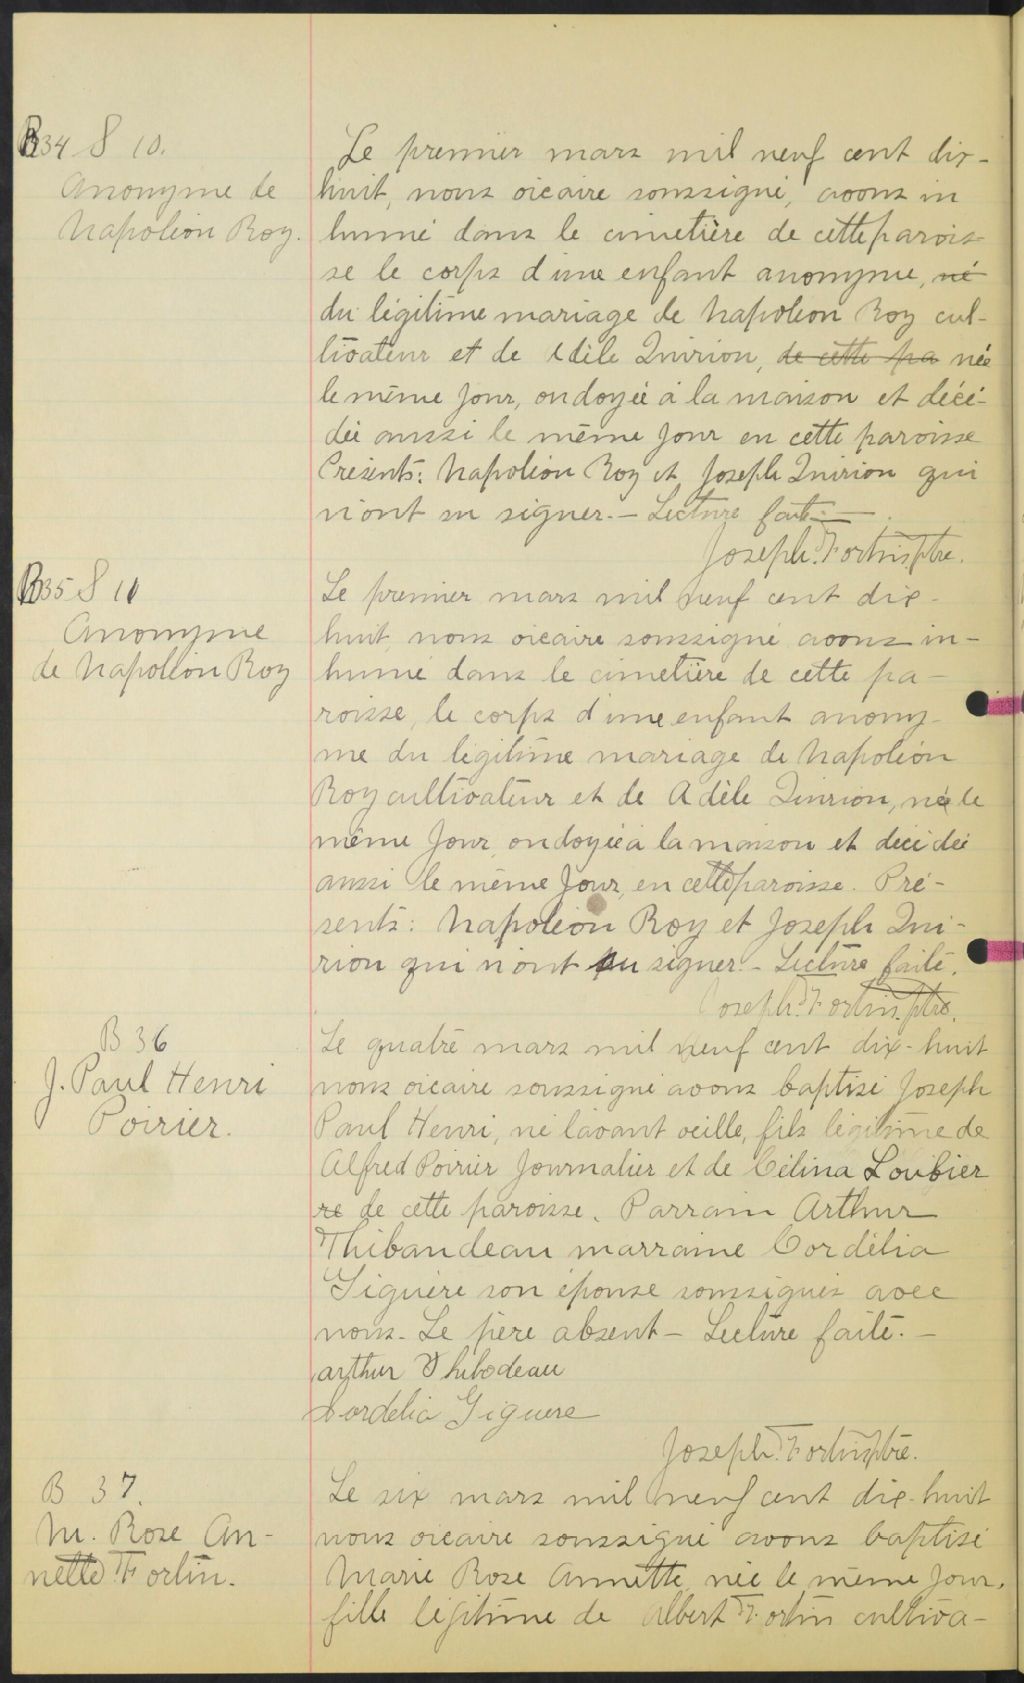 B34 S 10.
Anonyme de
Napoléon Roy.
Le premier mars mil neuf cent dix-
huit, nous vicaire soussigné, avons in
humé dans le cimetière de cette parois
se le corps d'une enfant anonyme, né
du légitime mariage de Napoléon Roy cul-
tivateur et de Adèle Quirion, de cette pa née
le même jour, ondoyée à la maison et décé-
dée aussi le même jour en cette paroisse
Présents: Napoléon Roy et Joseph Quirion qui
n'ont su signer. - Lecture faite. -
Joseph. Fortin, ptre.
B35 S 11
Anonyme
de Napoléon Roy
Le premier mars mil neuf cent dix-
huit, nous vicaire soussigné avons in-
humé dans le cimetière de cette pa-
roisse, le corps d'une enfant anony-
me du légitime mariage de Napoléon
Roy cultivateur et de Adèle Quirion, née le
même jour, ondoyée à la maison et décédée
aussi le même jour, en cette paroisse. Pré-
sents: Napoléon Roy et Joseph Qui-
rion qui n'ont su signer. - Lecture faite.
Joseph. Fortin, ptre.
B 36
J. Paul Henri
Poirier.
Le quatre mars mil neuf cent dix-huit
nous vicaire soussigné avons baptisé Joseph
Paul Henri, né l'avant veille, fils légitime de
Alfred Poirier journalier et de Célina Loubier
re de cette paroisse. Parrain Arthur
Thibaudeau marraine Cordélia
Giguère son épouse soussignés avec
nous. Le père absent - Lecture faite. -
arthur Thibodeau
Cordelia Giguere
Joseph. Fortin, ptre.
B 37.
M. Rose An-
nette Fortin.
Le six mars mil neuf cent dix-huit
nous vicaire soussigné avons baptisé
Marie Rose Annette, née le même jour,
fille légitime de Albert Fortin cultiva-